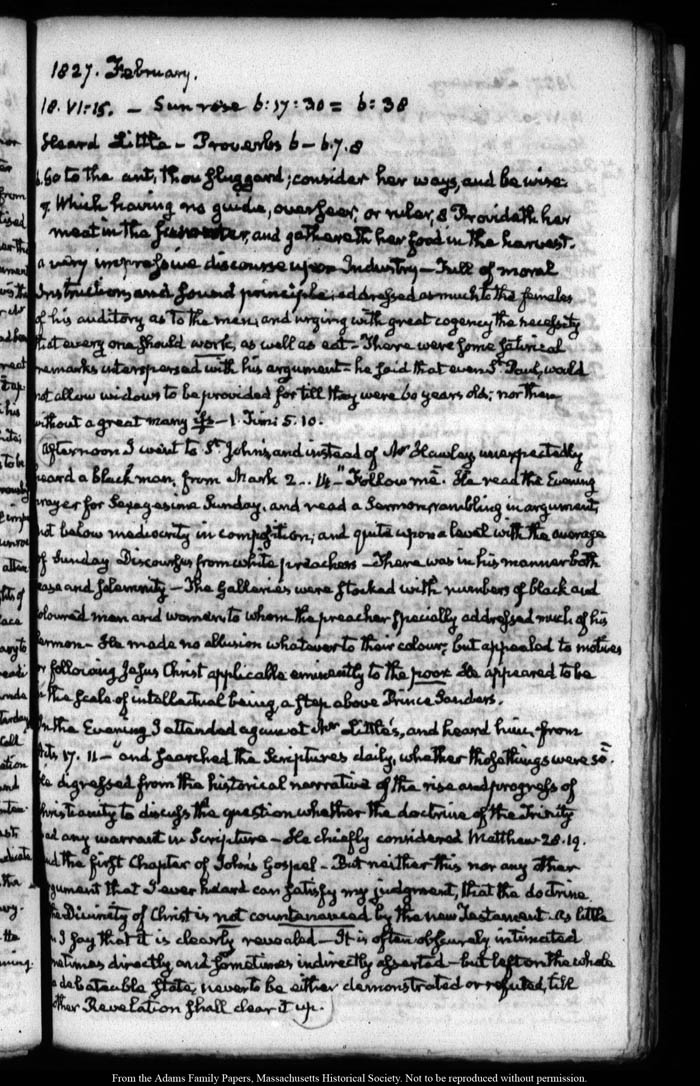 1827. February.
18. VI:15. – Sun rose 6:17:30 = 6:38
Heard Little – Proverbs 6 – 6.7.8
6. Go to the ant, thou sluggard; consider her ways, and be wise.
7. Which having no guide, overseer, or ruler, 8 Provideth her
meat in the summer, and gathereth her food in the harvest.
a very impressive discourse upon Industry – Full of moral
Instruction, and sound principle; addressed as much to the females
of his auditory as to the men, and urging with great cogency the necessity
that every one should work, as well as eat – There were some satirical
remarks interspersed with his argument – he said that even St. Paul, would
not allow widows to be provided for till they were 60 years old; nor then
without a great many ifs – 1. Tim: 5. 10.
Afternoon I went to St. John's and instead of Mr Hawley unexpectedly
heard a black man, from Mark 2.. 14 – "Follow me". He read the Evening
prayer for Sexagesima Sunday, and read a Sermon, rambling in argument,
not below mediocrity in composition; and quite upon a level with the average
of Sunday Discourses from white preachers – There was in his manner both
ease and solemnity – The Galleries were stocked with numbers of black and
coloured men and women to whom the preacher specially addressed much of his
sermon – He made no allusion whatever to their colour; but appealed to motives
for following Jesus Christ applicable eminently to the poor. He appeared to be
in the scale of intellectual being a step above Prince Sanders.
In the Evening I attended again at Mr Little's, and heard him, from
Acts 17. 11 – "and searched the Scriptures daily, whether those things were so".
He digressed from the historical narrative of the rise and progress of
Christianity to discuss the question whether the doctrine of the Trinity
had any warrant in Scripture – He chiefly considered Matthew 28.19.
and the first Chapter of John's Gospel – But neither this nor any other
argument that I ever heard can satisfy my judgment, that the doctrine
the Divinity of Christ is not countenanced by the new Testament. As little
can I say that it is clearly revealed – It is often obscurely intimated
sometimes directly and sometimes indirectly asserted – but left on the whole
a debateable state, never to be either demonstrated or refuted, till
other Revelation shall clear it up.
From the Adams Family Papers, Massachusetts Historical Society. Not to be reproduced without permission.